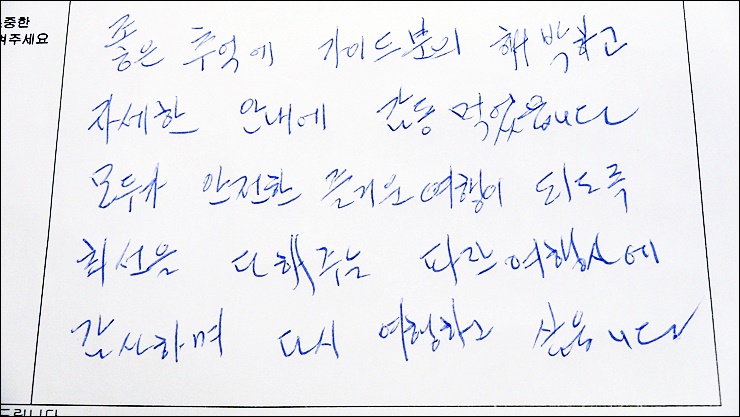 소중한
겨주세요
좋은 추억에 가이드분의 해박하고
자세한 안내에 감동 먹었읍니다
모두가 안전한 즐거운 여행이 되도록
최선을 다해주는 따란여행사에
감사하며 다시 여행하고 싶읍니다
드립니다